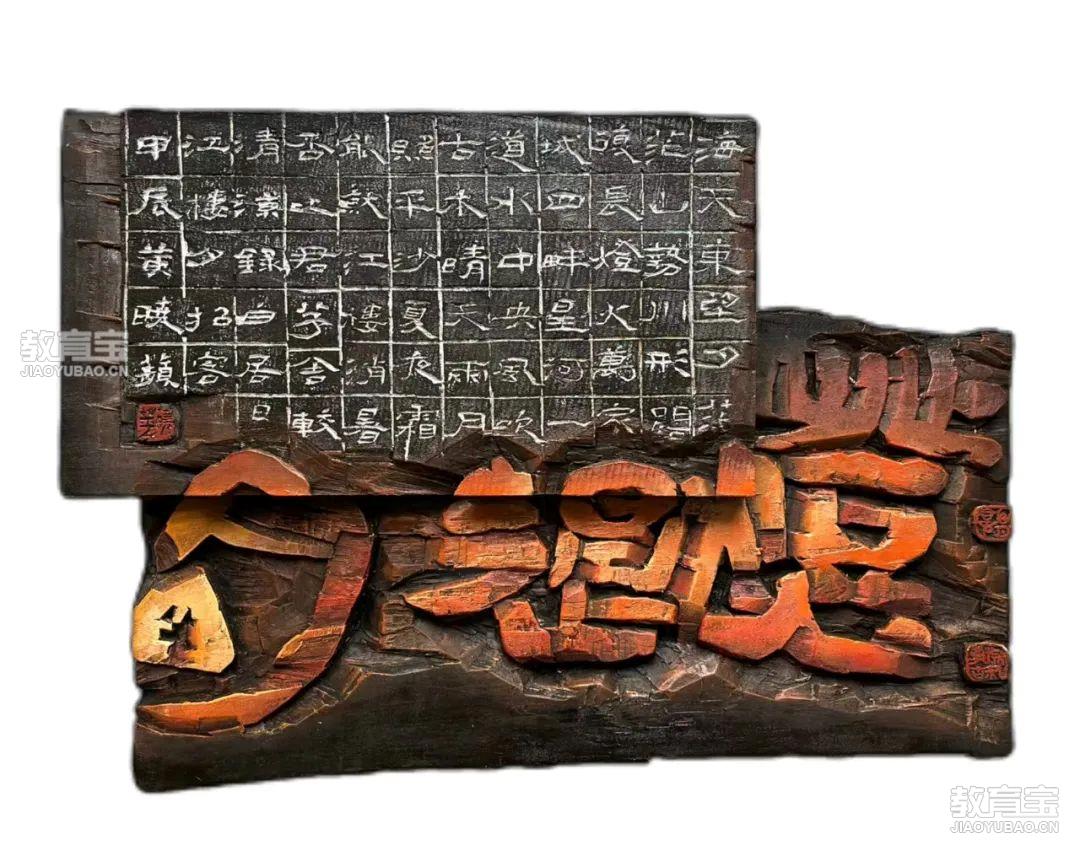 海天東望夕茫
茫山勢川形闊
復長燈火萬家
城四畔星河一
道水中央風吹
古木晴天雨月
照平沙夏夜霜
能就江樓消暑
否比君茅舍較
清涼錄白居易
江樓夕招客
甲辰黃曉蘋
教育宝
JIAOYUBAO.CN
教育宝
JIAOYUBAO.CN